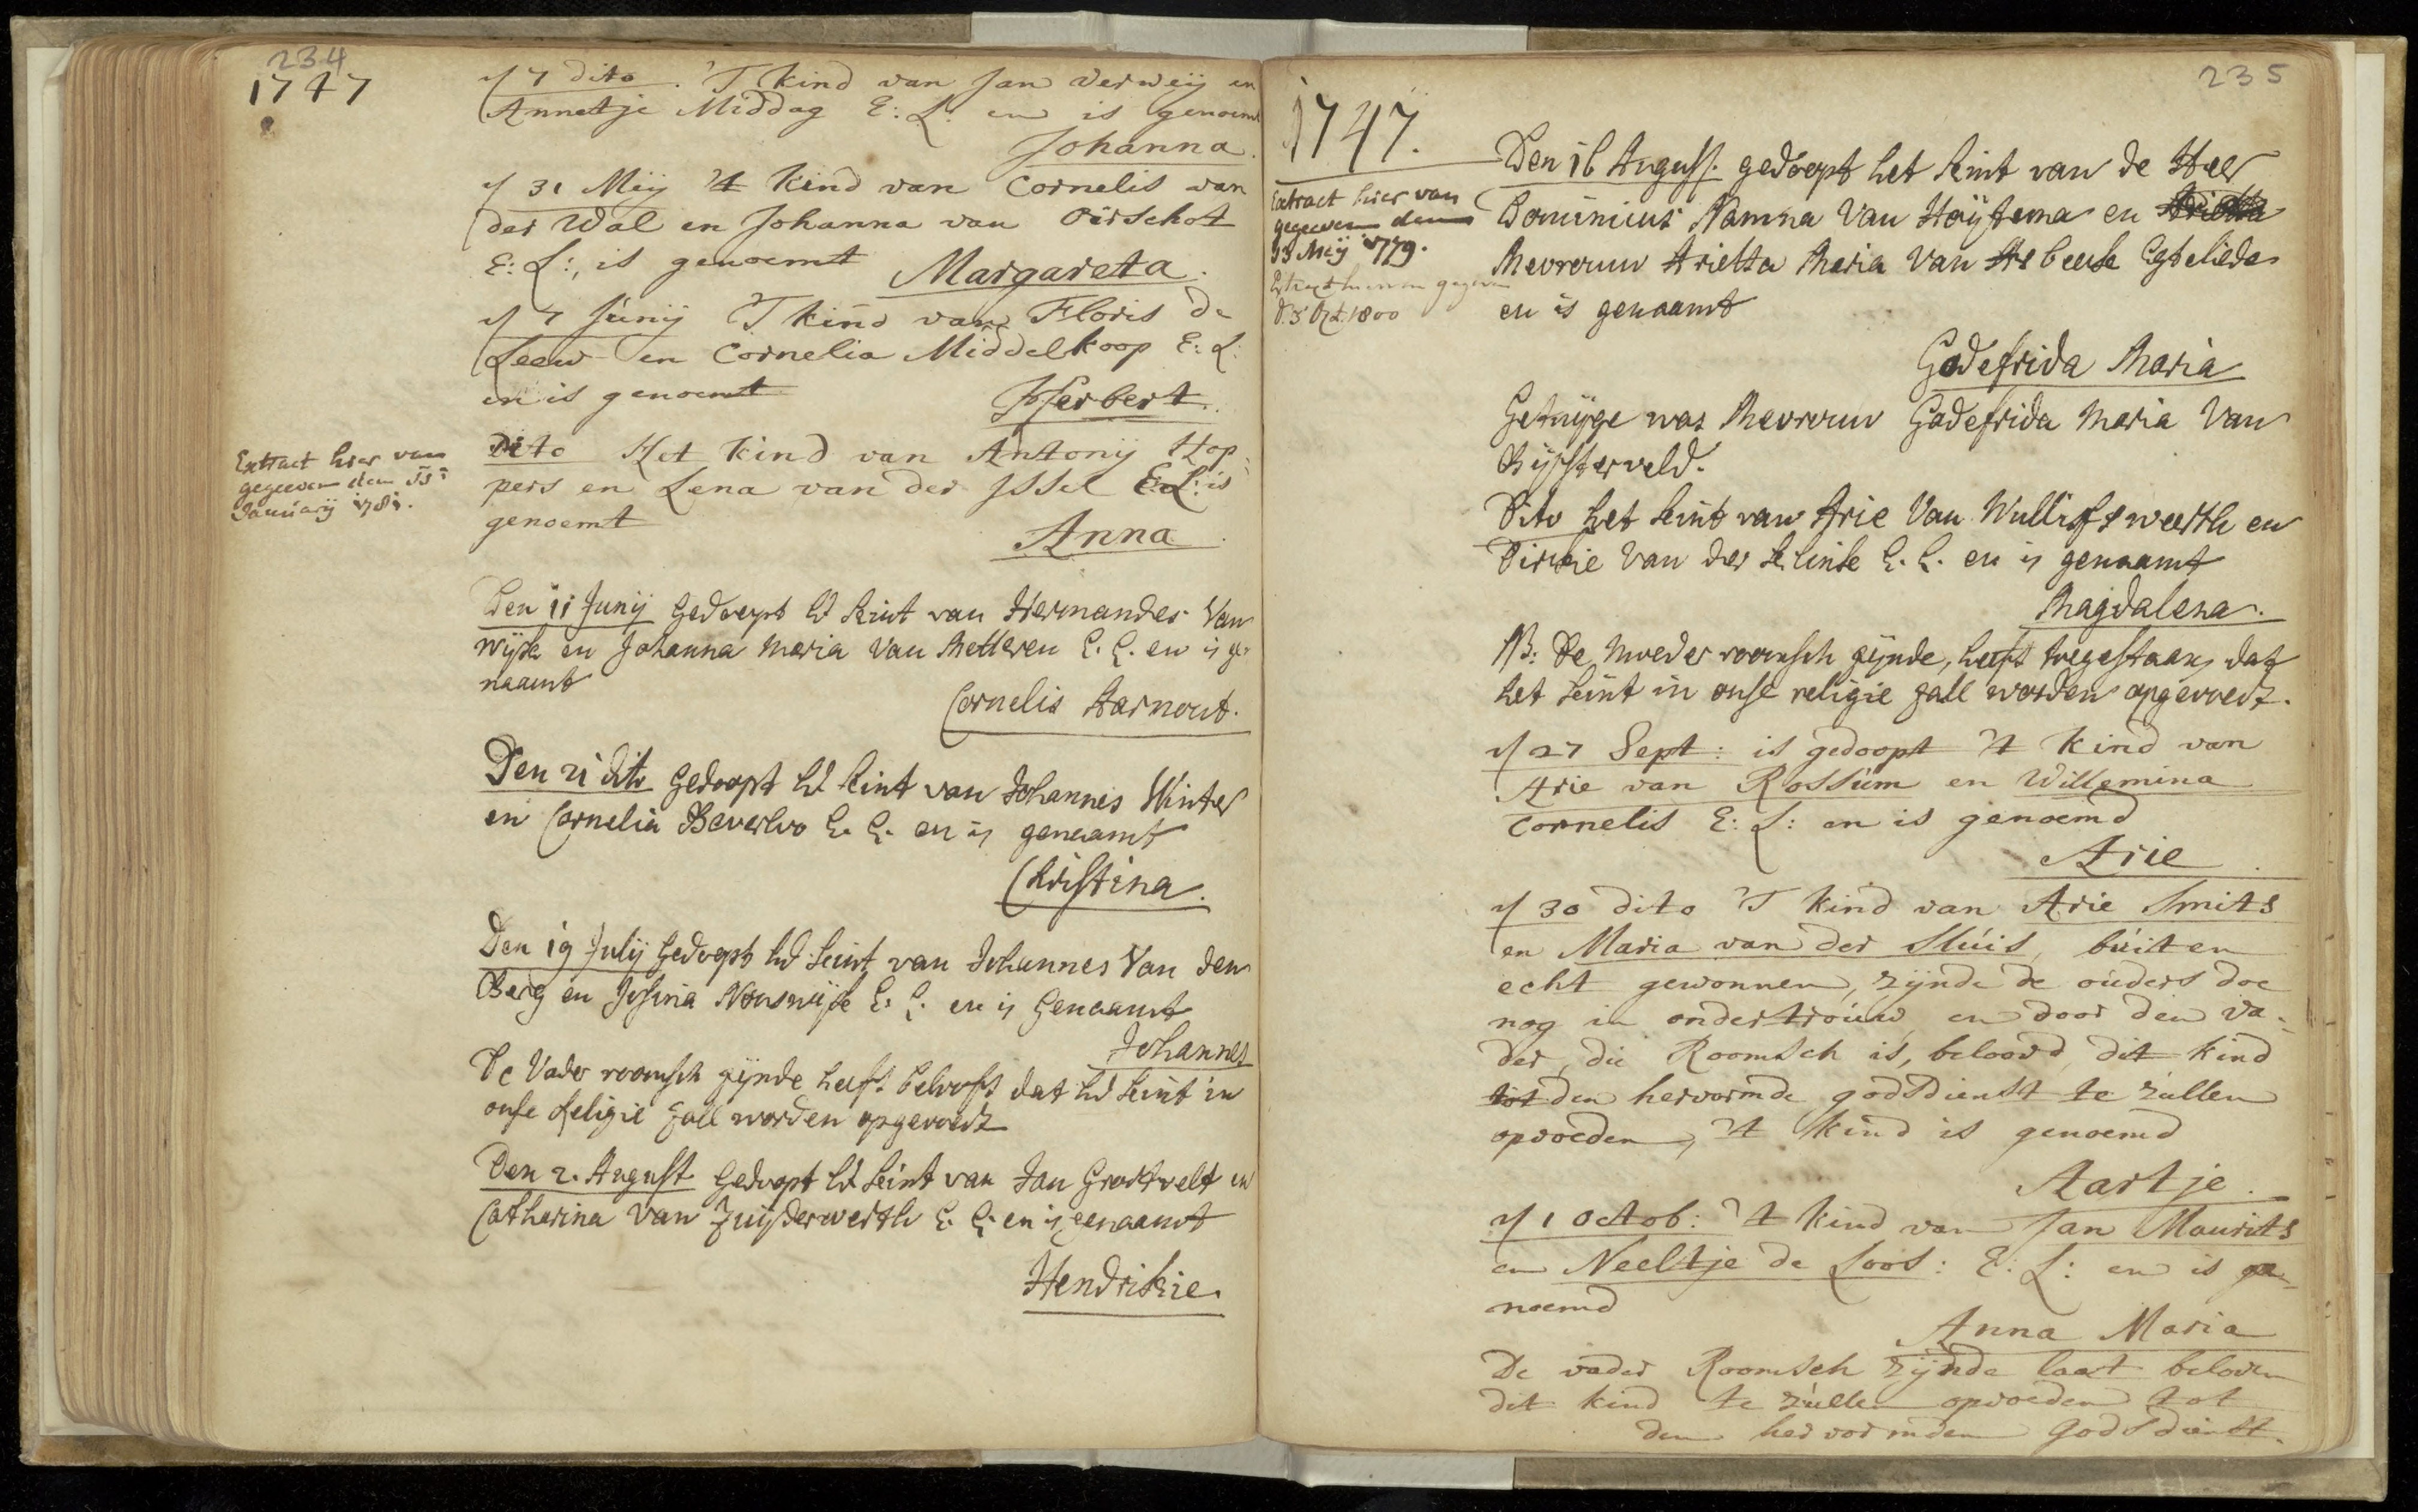 234
1747
d 7 dito. 'T kind van Jan Verweij en
Annetje Middag E: L: en is genoemt
Johanna.
d 31 Meij 't kind van Cornelis van
der Wal en Johanna van Oirschot
E: L:, is genoemt Margareta.
d 7 Junij 'T kind van Floris de
Leeuw en Cornelia Middelkoop E: L:
en is genoemt Herbert.
Extract hier van
gegeeven den
January 1781.
Dito Het kind van Antonij Hop-
pers en Lena van der Issel E: L: is
genoemt
Anna.
Den 11 Junij Gedoopt het kint van Hermandes Van
Wijk en Johanna Maria Van Metteren E. L. en is ge-
naamt
Cornelis Aarnout.
Den 21 dito Gedoopt het kint van Johannes Winter
en Cornelia Beverloo E. L. en is genaamt
Christina.
Den 19 Julij Gedoopt het kint van Johannes Van den
Berg en E. L. en is Genaamt
Johannes
De Vader roomsch zijnde heeft belooft dat het kint in
onse Religie zall worden opgevoedt
Den 2. August Gedoopt het kint van Jan Grootvelt en
Catharina Van Zuijderwerth E. L. en is genaamt
Hendrikie.
235
1747.
Extract hier van
gegeeven den
13 Meij 1779.
Extract hiervan gegeven
d. 3 Oct. 1800
Den 16 August. gedoopt het kint van de Heer
Dominicus Namna Van Hoijtema en Arietta
Mevrouw Arietta Maria Van Egtelieden
en is genaamt
Godefrida Maria
Getuijge was Mevrouw Godefrida Maria Van
Bijsterveld.
Dito het kint van Arie Van Wullifswerth en
Dirkie Van der Klinke E. L. en is genaamt
Magdalena.
NB: De Moeder roomsch zijnde, heeft toegestaan, dat
het kint in onse religie zall worden opgevoedt.
d 27 Sept: is gedoopt 't kind van
Arie van Rossum en Willemina
Cornelis E: L: en is genoemd
Arie.
d 30 dito 'T kind van Arie Smits
en Maria van der Sluis, buiten
echt gewonnen, zijnde de ouders doe
nog in ondertrouw, en door den Va-
der, die Roomsch is, beloovd, dit kind
tot den hervormde godsdienst te zullen
opvoeden, 't kind is genoemd
Aartje.
d 1 Octob: 't kind van Jan Maurits
en Neeltje de Loos: E: L: en is ge-
noemd
Anna Maria
De vader Roomsch zijnde laat beloven
dit kind te zullen opvoeden tot
den hervormden Godsdienst.